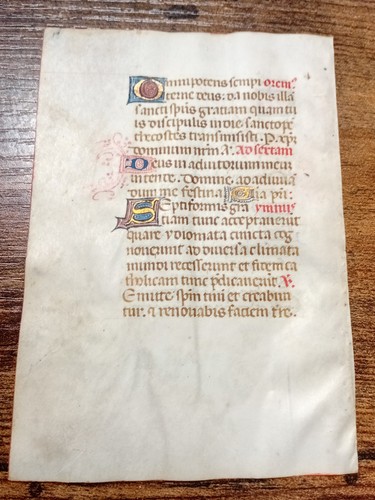 Omnipotens sempi orem9
terne deus: da nobis illā
sancti sp̄us gratiam quam tu
is discipulis in die sancto pē
thecostes transmisisti. P. xp̄m
dominum nr̄m. A. Ad sextam
Deus in adiutorium meū
intende. Domine ad adiuuā
dum me festina. Glīa pr̄i.
Septiformis gr̄a ymnus
tiam tunc acceperunt
quare ydiomata cuncta cog
nouerunt ad diuersa climata
mundi recesserunt et fidem ca
tholicam tunc p̄dicauerūt. V.
Emitte sp̄m tuū et creabun
tur. et renouabis faciem t̄re.